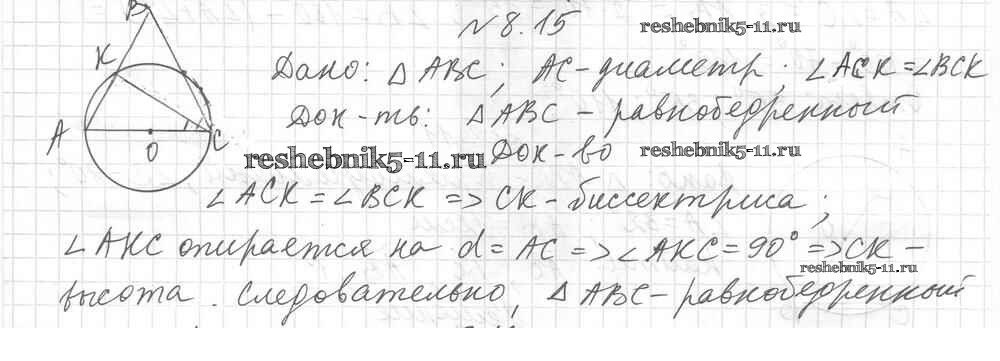 №8.15
reshebnik5-11.ru
B
K
A
O
C
Дано: △ABC; AC-диаметр; ∠ACK=∠BCK
Док-ть: △ABC – равнобедренный
Док-во
reshebnik5-11.ru
reshebnik5-11.ru
∠ACK = ∠BCK => CK-биссектриса;
∠AKC опирается на d=AC => ∠AKC=90° => CK –
reshebnik5-11.ru
высота. Следовательно, △ABC-равнобедренный